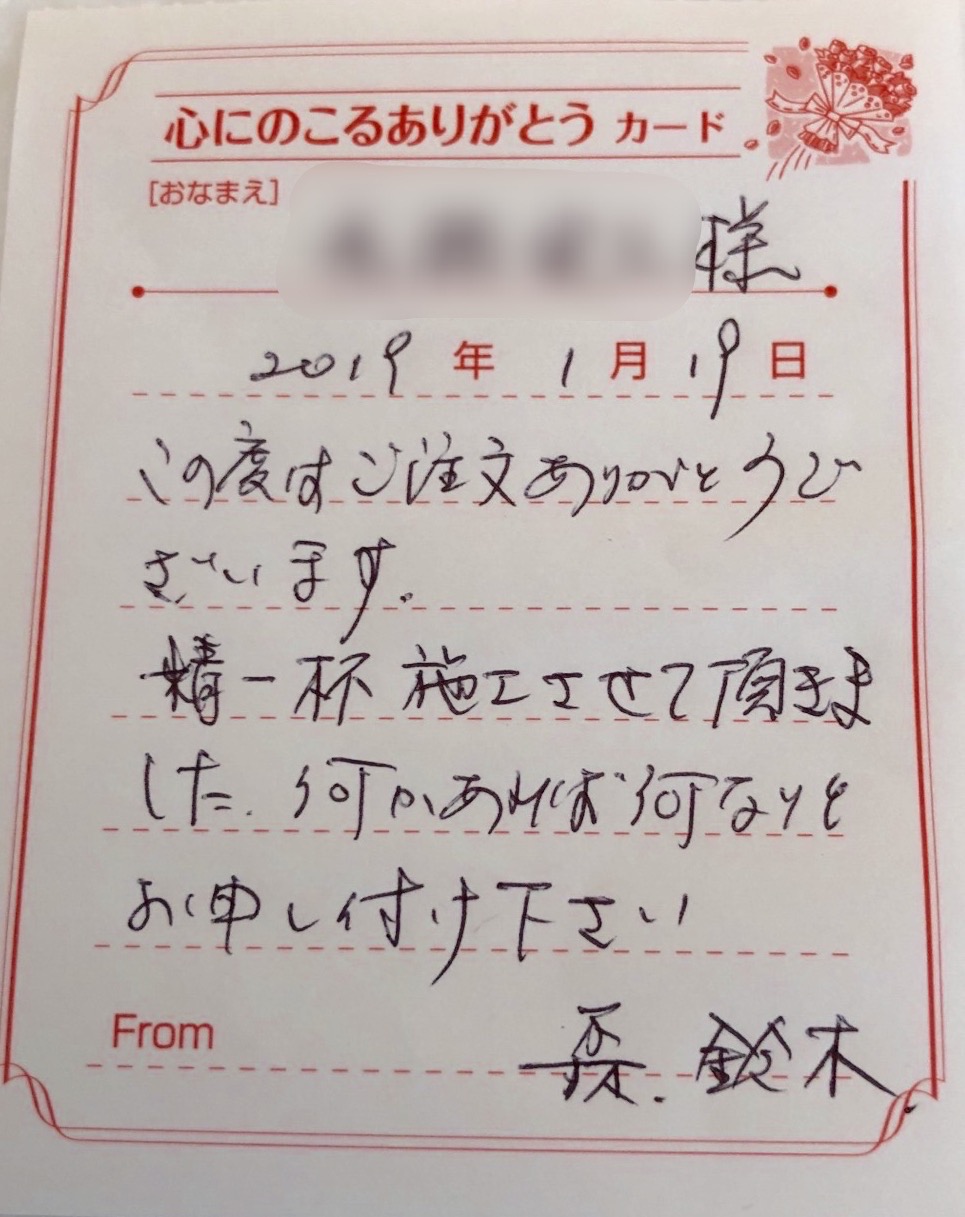 心にのこるありがとう カード
[おなまえ]
様
2019年 1月 19日
この度はご注文ありがとうご
ざいます。
精一杯施工させて頂きま
した.何かあれば何なりと
お申し付け下さい
From
森.鈴木